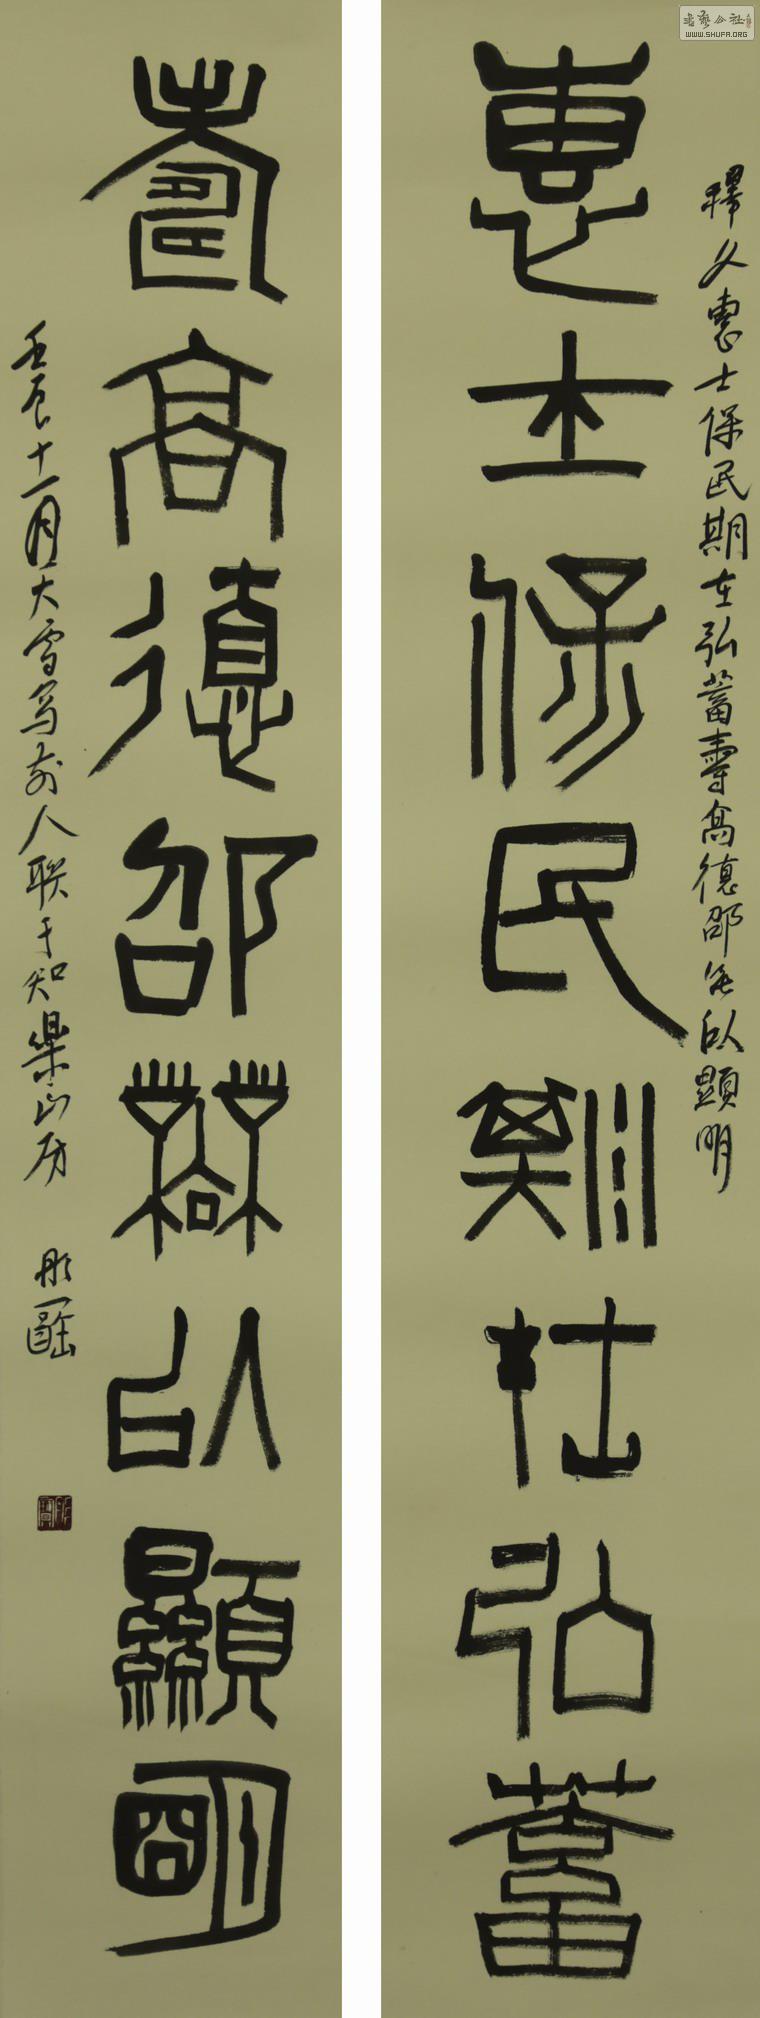 書艺公社
WWW.SHUFA.ORG
释文惠士保民期在弘蓄壽高德邵無以顯明
惠士保民期在弘蓄
壽高德邵無以顯明
壬辰十一月大雪写前人联于知樂山房